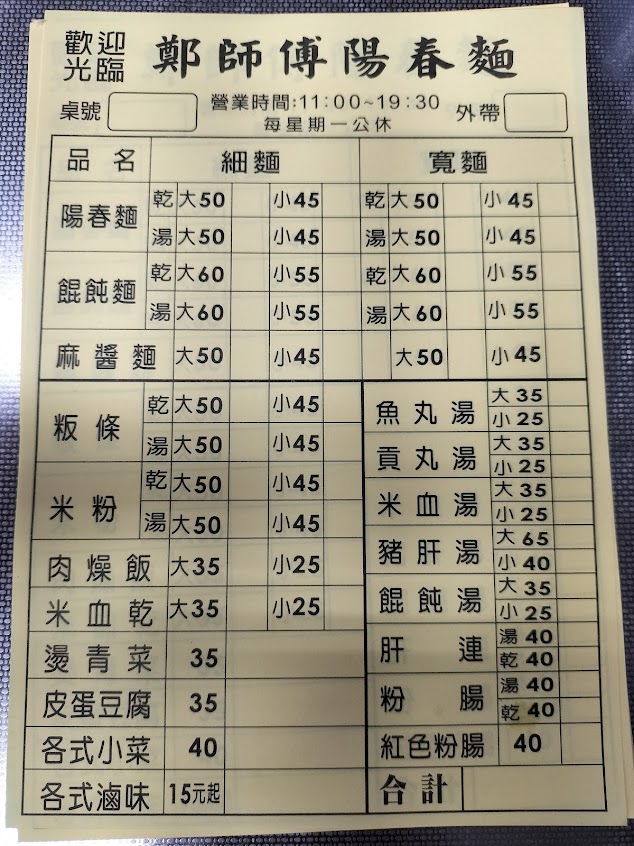 歡迎光臨
鄭師傅陽春麵
桌號 營業時間:11:00~19:30 外帶
每星期一公休
品名 細麵 寬麵
陽春麵 乾 大50 小45 乾 大50 小45
湯 大50 小45 湯 大50 小45
餛飩麵 乾 大60 小55 乾 大60 小55
湯 大60 小55 湯 大60 小55
麻醬麵 大50 小45 大50 小45
粄條 乾 大50 小45
湯 大50 小45
米粉 乾 大50 小45
湯 大50 小45
肉燥飯 大35 小25
米血乾 大35 小25
燙青菜 35
皮蛋豆腐 35
各式小菜 40
各式滷味 15元起
魚丸湯 大35
小25
貢丸湯 大35
小25
米血湯 大35
小25
豬肝湯 大65
小40
餛飩湯 大35
小25
肝連 湯40
乾40
粉腸 湯40
乾40
紅色粉腸 40
合計